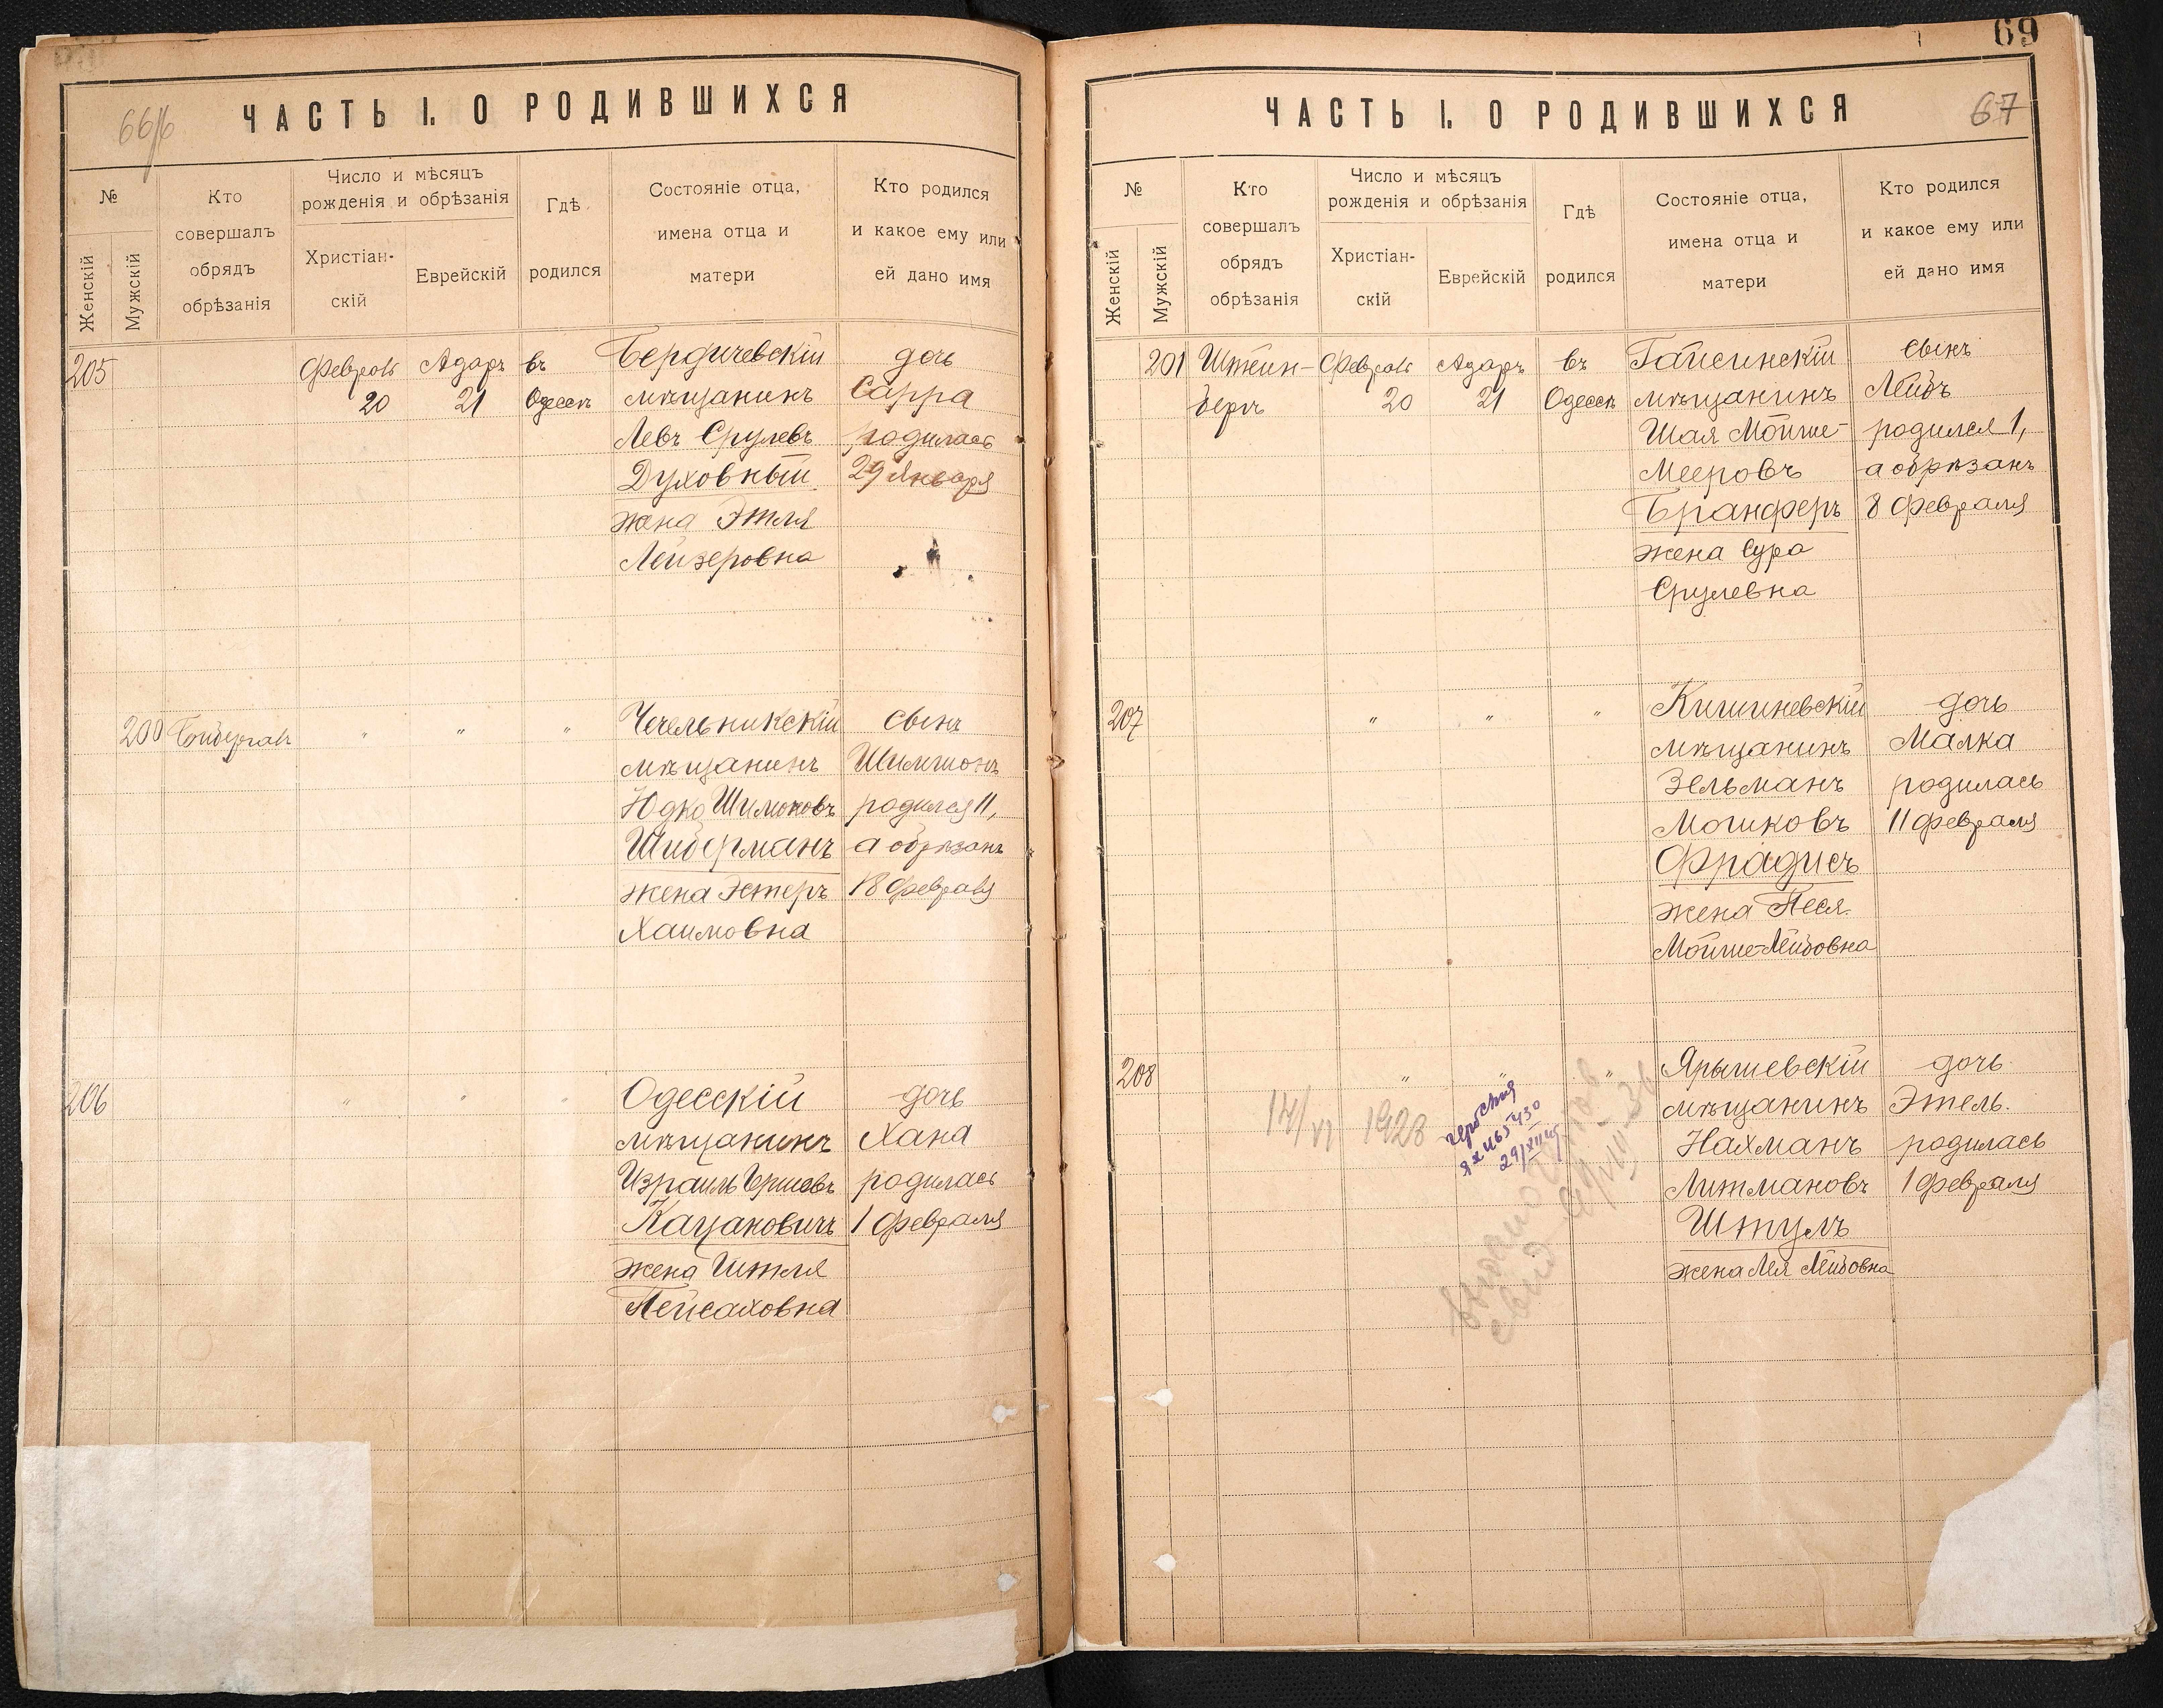 66/б
ЧАСТЬ I. О РОДИВШИХСЯ
№
Женскій
Мужскій
Кто
совершалъ
обрядъ
обрѣзанія
Число и мѣсяцъ
рожденія и обрѣзанія
Христіан-
скій
Еврейскій
Гдѣ
родился
Состояніе отца,
имена отца и
матери
Кто родился
и какое ему или
ей дано имя
205
Февраль
20
Адаръ
21
въ
Одессѣ
Бердичевскій
мѣщанинъ
Левъ Срулевъ
Духовный
жена Этля
Лейзеровна
дочь
Сарра
родилась
29 Января
200
"
"
"
Чечельникскій
мѣщанинъ
Юдко Шимоновъ
Шиберманъ
жена Эстеръ
Хаимовна
сынъ
Шимшонъ
родился 11,
а обрѣзанъ
18 Февраля
206
"
"
"
Одесскій
мѣщанинъ
Израиль Ершовъ
Кацановичъ
жена Ителя
Пейсаховна
дочь
Хана
родилась
1 Февраля
69
67
ЧАСТЬ I. О РОДИВШИХСЯ
№
Женскій
Мужскій
Кто
совершалъ
обрядъ
обрѣзанія
Число и мѣсяцъ
рожденія и обрѣзанія
Христіан-
скій
Еврейскій
Гдѣ
родился
Состояніе отца,
имена отца и
матери
Кто родился
и какое ему или
ей дано имя
201
Штейн-
бергъ
Февраль
20
Адаръ
21
въ
Одессѣ
Гайсинскій
мѣщанинъ
Шая Мойше-
Мееровъ
Бранферъ
жена Сура
Срулевна
сынъ
Лейбъ
родился 1,
а обрѣзанъ
8 Февраля
207
"
"
"
Кишиневскій
мѣщанинъ
Зельманъ
Мошковъ
Фрадисъ
жена Песя
Мойше-Лейбовна
дочь
Малка
родилась
11 Февраля
208
"
"
"
14/VI 1928
Ярышевскій
мѣщанинъ
Нахманъ
Литмановъ
Штулъ
жена Лея Лейбовна
дочь
Этель.
родилась
1 Февраля